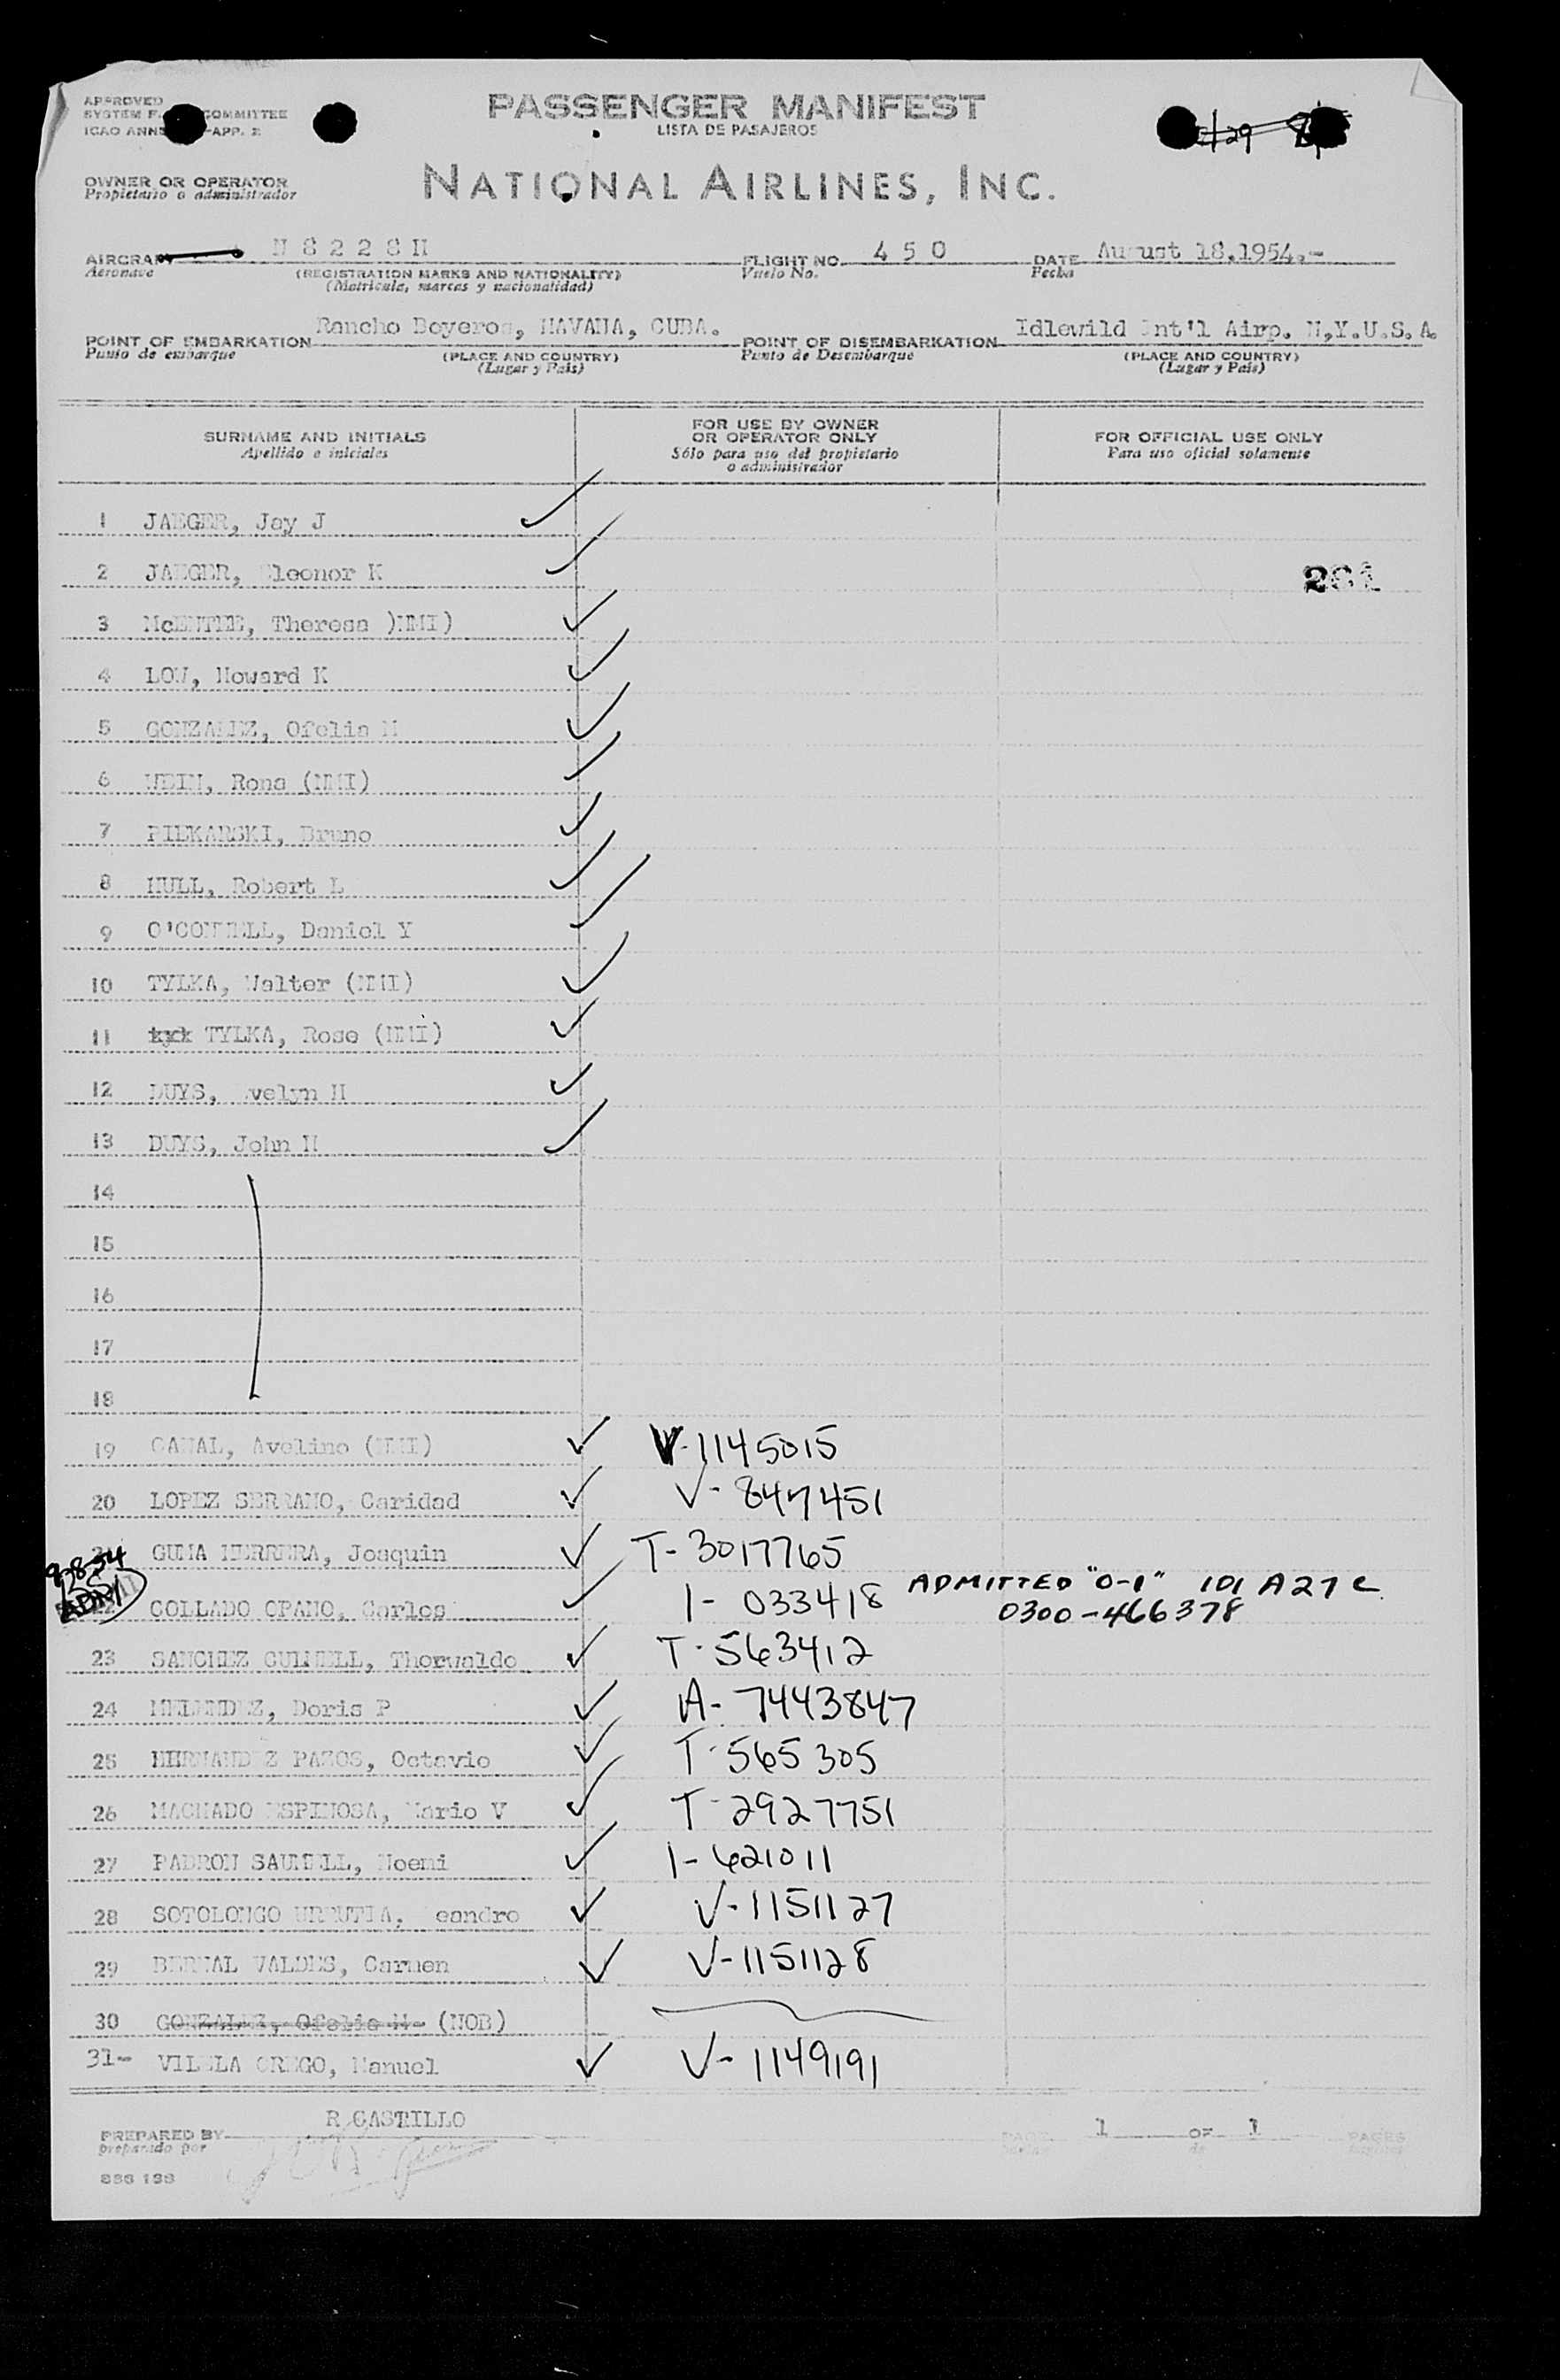 APPROVED
SYSTEM F. COMMITTEE
ICAO ANNE -APP. 2
PASSENGER MANIFEST
LISTA DE PASAJEROS
OWNER OR OPERATOR
Propietario o administrador
NATIONAL AIRLINES, INC.
AIRCRAFT N 8 2 2 8 H FLIGHT NO. 4 5 0 DATE August 18,1954.-
Aeronave (REGISTRATION MARKS AND NATIONALITY) Vuelo No. Fecha
(Matricula, marcas y nacionalidad)
POINT OF EMBARKATION Rancho Boyeros, HAVANA, CUBA. POINT OF DISEMBARKATION Idlewild Int'l Airp. N,Y.U.S.A.
Punto de embarque (PLACE AND COUNTRY) Punto de Desembarque (PLACE AND COUNTRY)
(Lugar y País) (Lugar y País)
SURNAME AND INITIALS FOR USE BY OWNER OR OPERATOR ONLY FOR OFFICIAL USE ONLY
Apellido e iniciales Sólo para uso del propietario o administrador Para uso oficial solamente
1 JAEGER, Jay J
2 JAEGER, Eleonor K 281
3 McENTEE, Theresa )NMI)
4 LOW, Howard K
5 GONZALEZ, Ofelia M
6 WEIN, Rona (NMI)
7 PIEKARSKI, Bruno
8 HULL, Robert L
9 O'CONNELL, Daniel Y
10 TYLKA, Walter (NMI)
11 TYLKA, Rose (NMI)
12 DUYS, Evelyn H
13 DUYS, John H
14
15
16
17
18
19 CANAL, Avelino (NMI) V-1145015
20 LOPEZ SERRANO, Caridad V-847451
GUMA HERRERA, Joaquin T-3017765
9-8-54
22 COLLADO OPANO, Carlos I-033418 ADMITTED "O-1" 101 A27 C
0300-466378
23 SANCHEZ GUMNELL, Thorwaldo T-563412
24 MELENDEZ, Doris P A-7443847
25 HERNANDEZ PAZOS, Octavio T-565305
26 MACHADO ESPINOSA, Mario V T-2927751
27 PADRON SAUMELL, Noemi I-621011
28 SOTOLONGO URRUTIA, Leandro V-1151127
29 BERNAL VALDES, Carmen V-1151128
30 GONZALEZ, Ofelia M- (NOB)
31- VILELA OREGO, Manuel V-1149191
PREPARED BY R CASTILLO PAGE 1 OF 1 PAGES
preparado por de